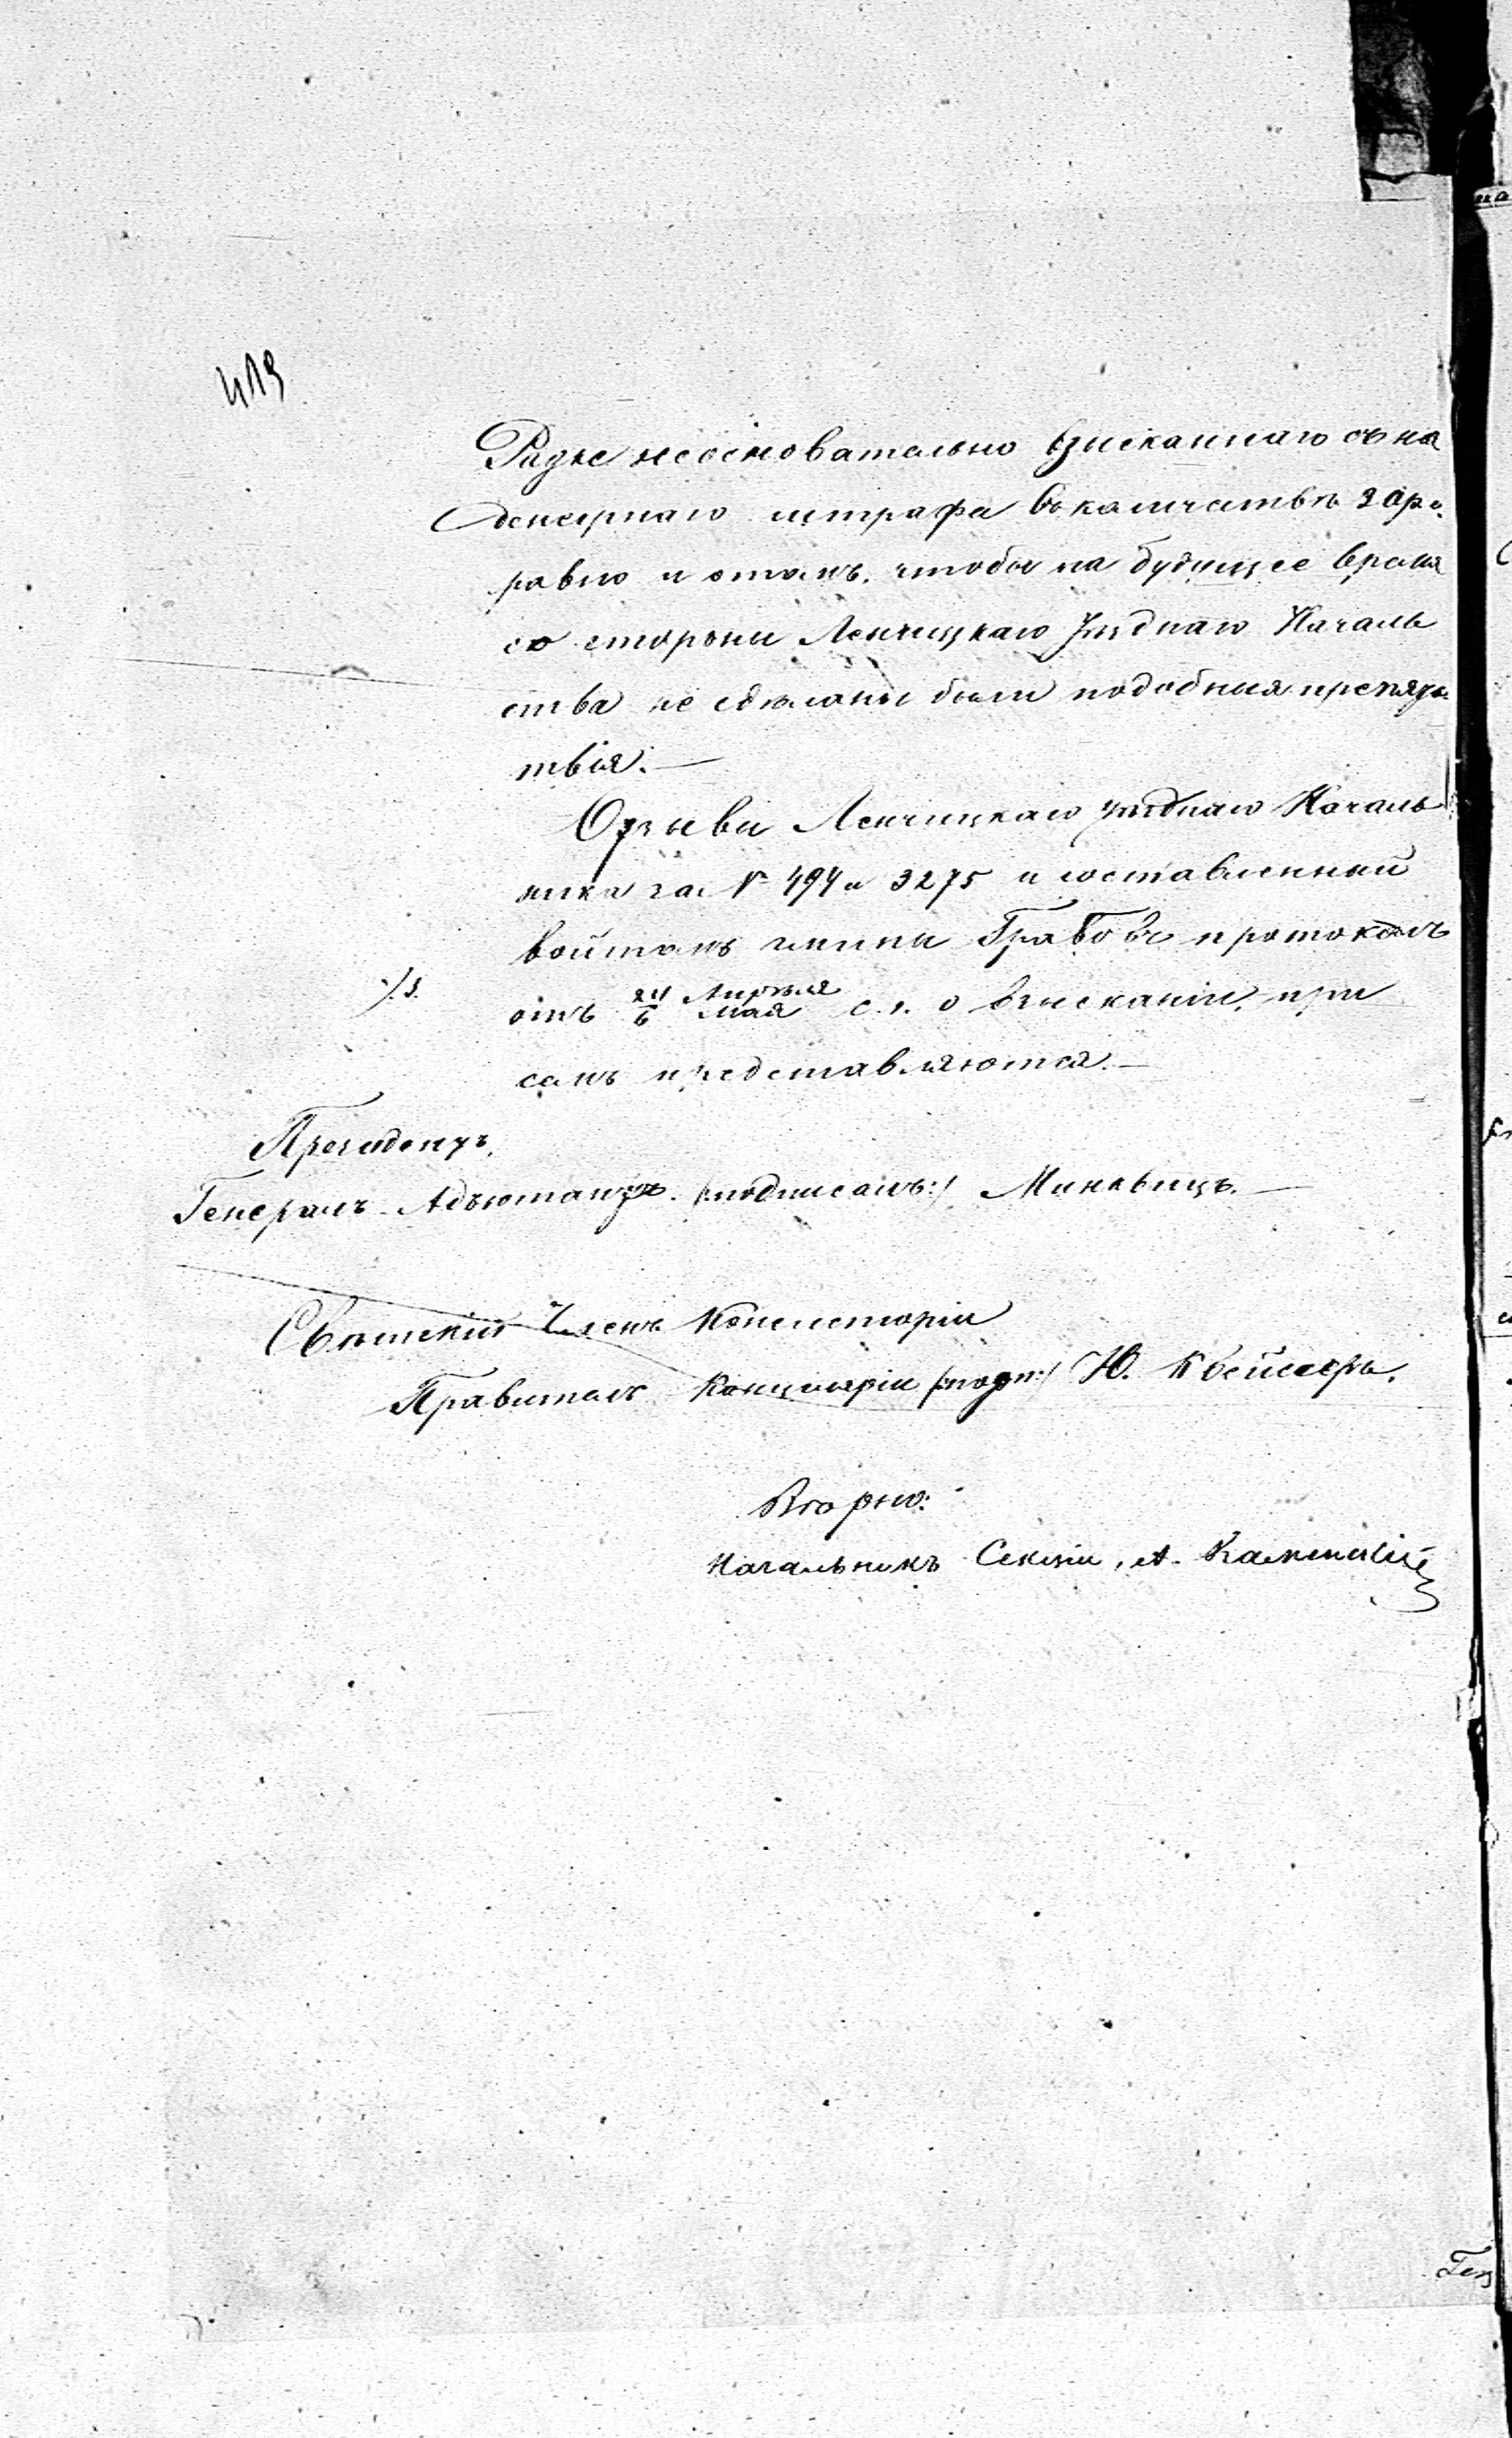 419
Радке неосновательно взысканнаго съ не
денежнаго штрафа въ количествѣ
равно и о томъ, чтобы на будущее время
со стороны Ленчицкаго Уѣзднаго Началь
ства не сдѣланы были подобныя препят
ствія.—
Отзывы Ленчицкаго уѣзднаго Началь
ника за № 494 и 3275 и составленный
войтомъ гмины Грабовъ протоколъ
отъ 24 Апрѣля / 6 Мая с. г. о взысканіи, при
семъ представляются.—
Президентъ,
Генералъ-Адъютантъ (:подписалъ:) Минквицъ.—
Свѣтскій Членъ Консисторіи
Правитель Канцеляріи (:подп:)
Вѣрно:
Начальникъ Секціи, А. Каменскій